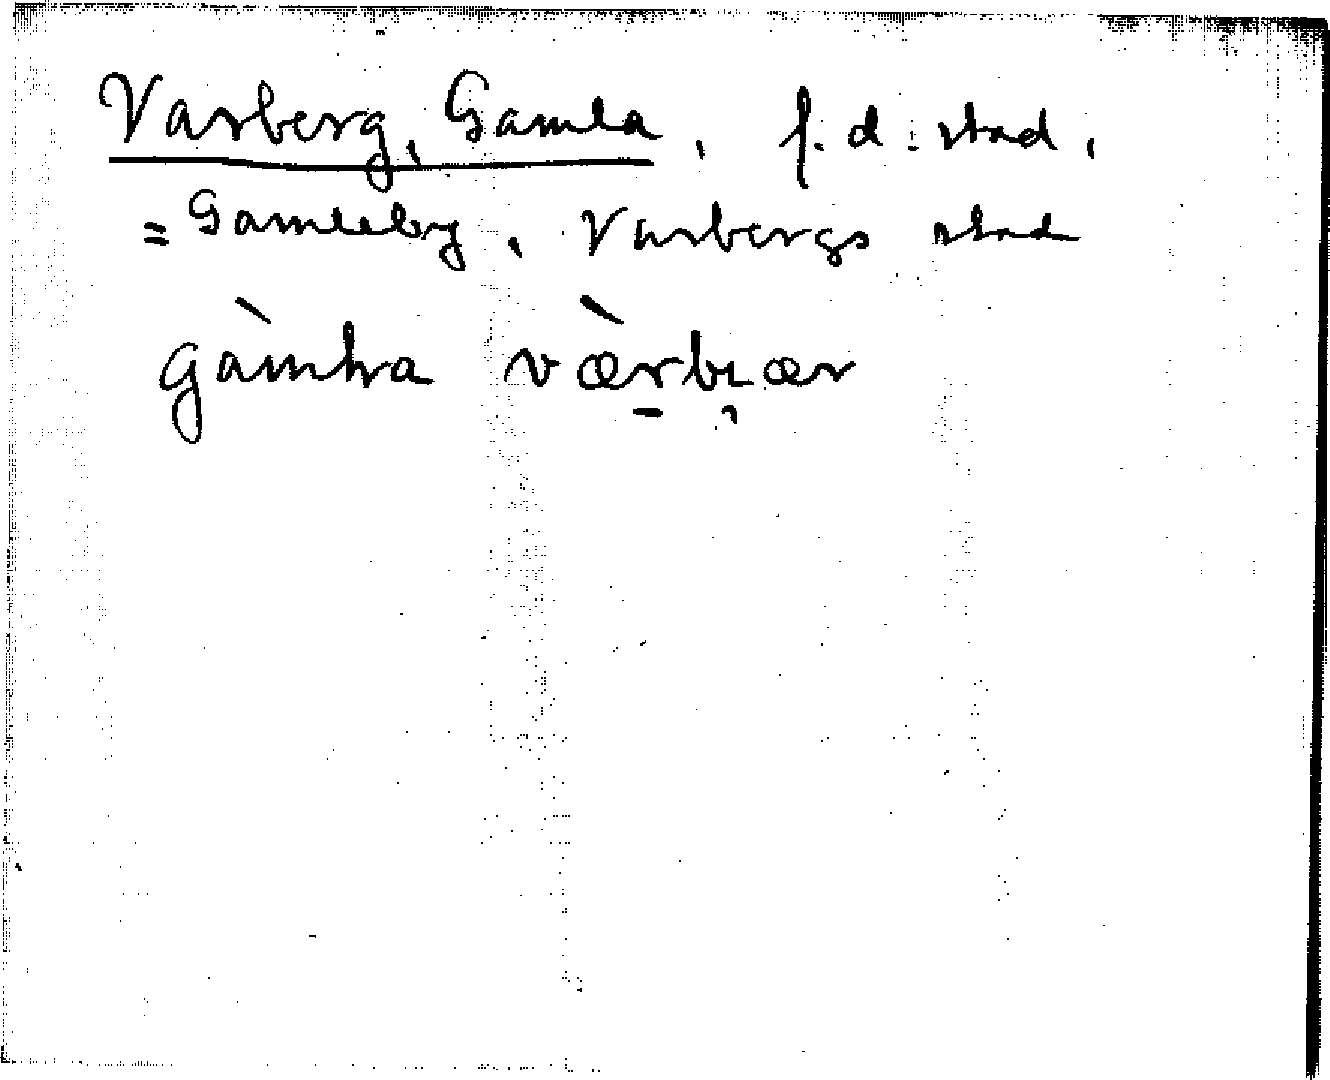 Varberg, Gamla, f.d. stad,
= Gamleby, Varbergs stad
gàmla